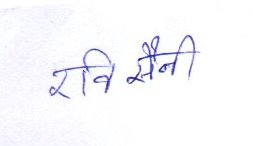 रवि सैनी